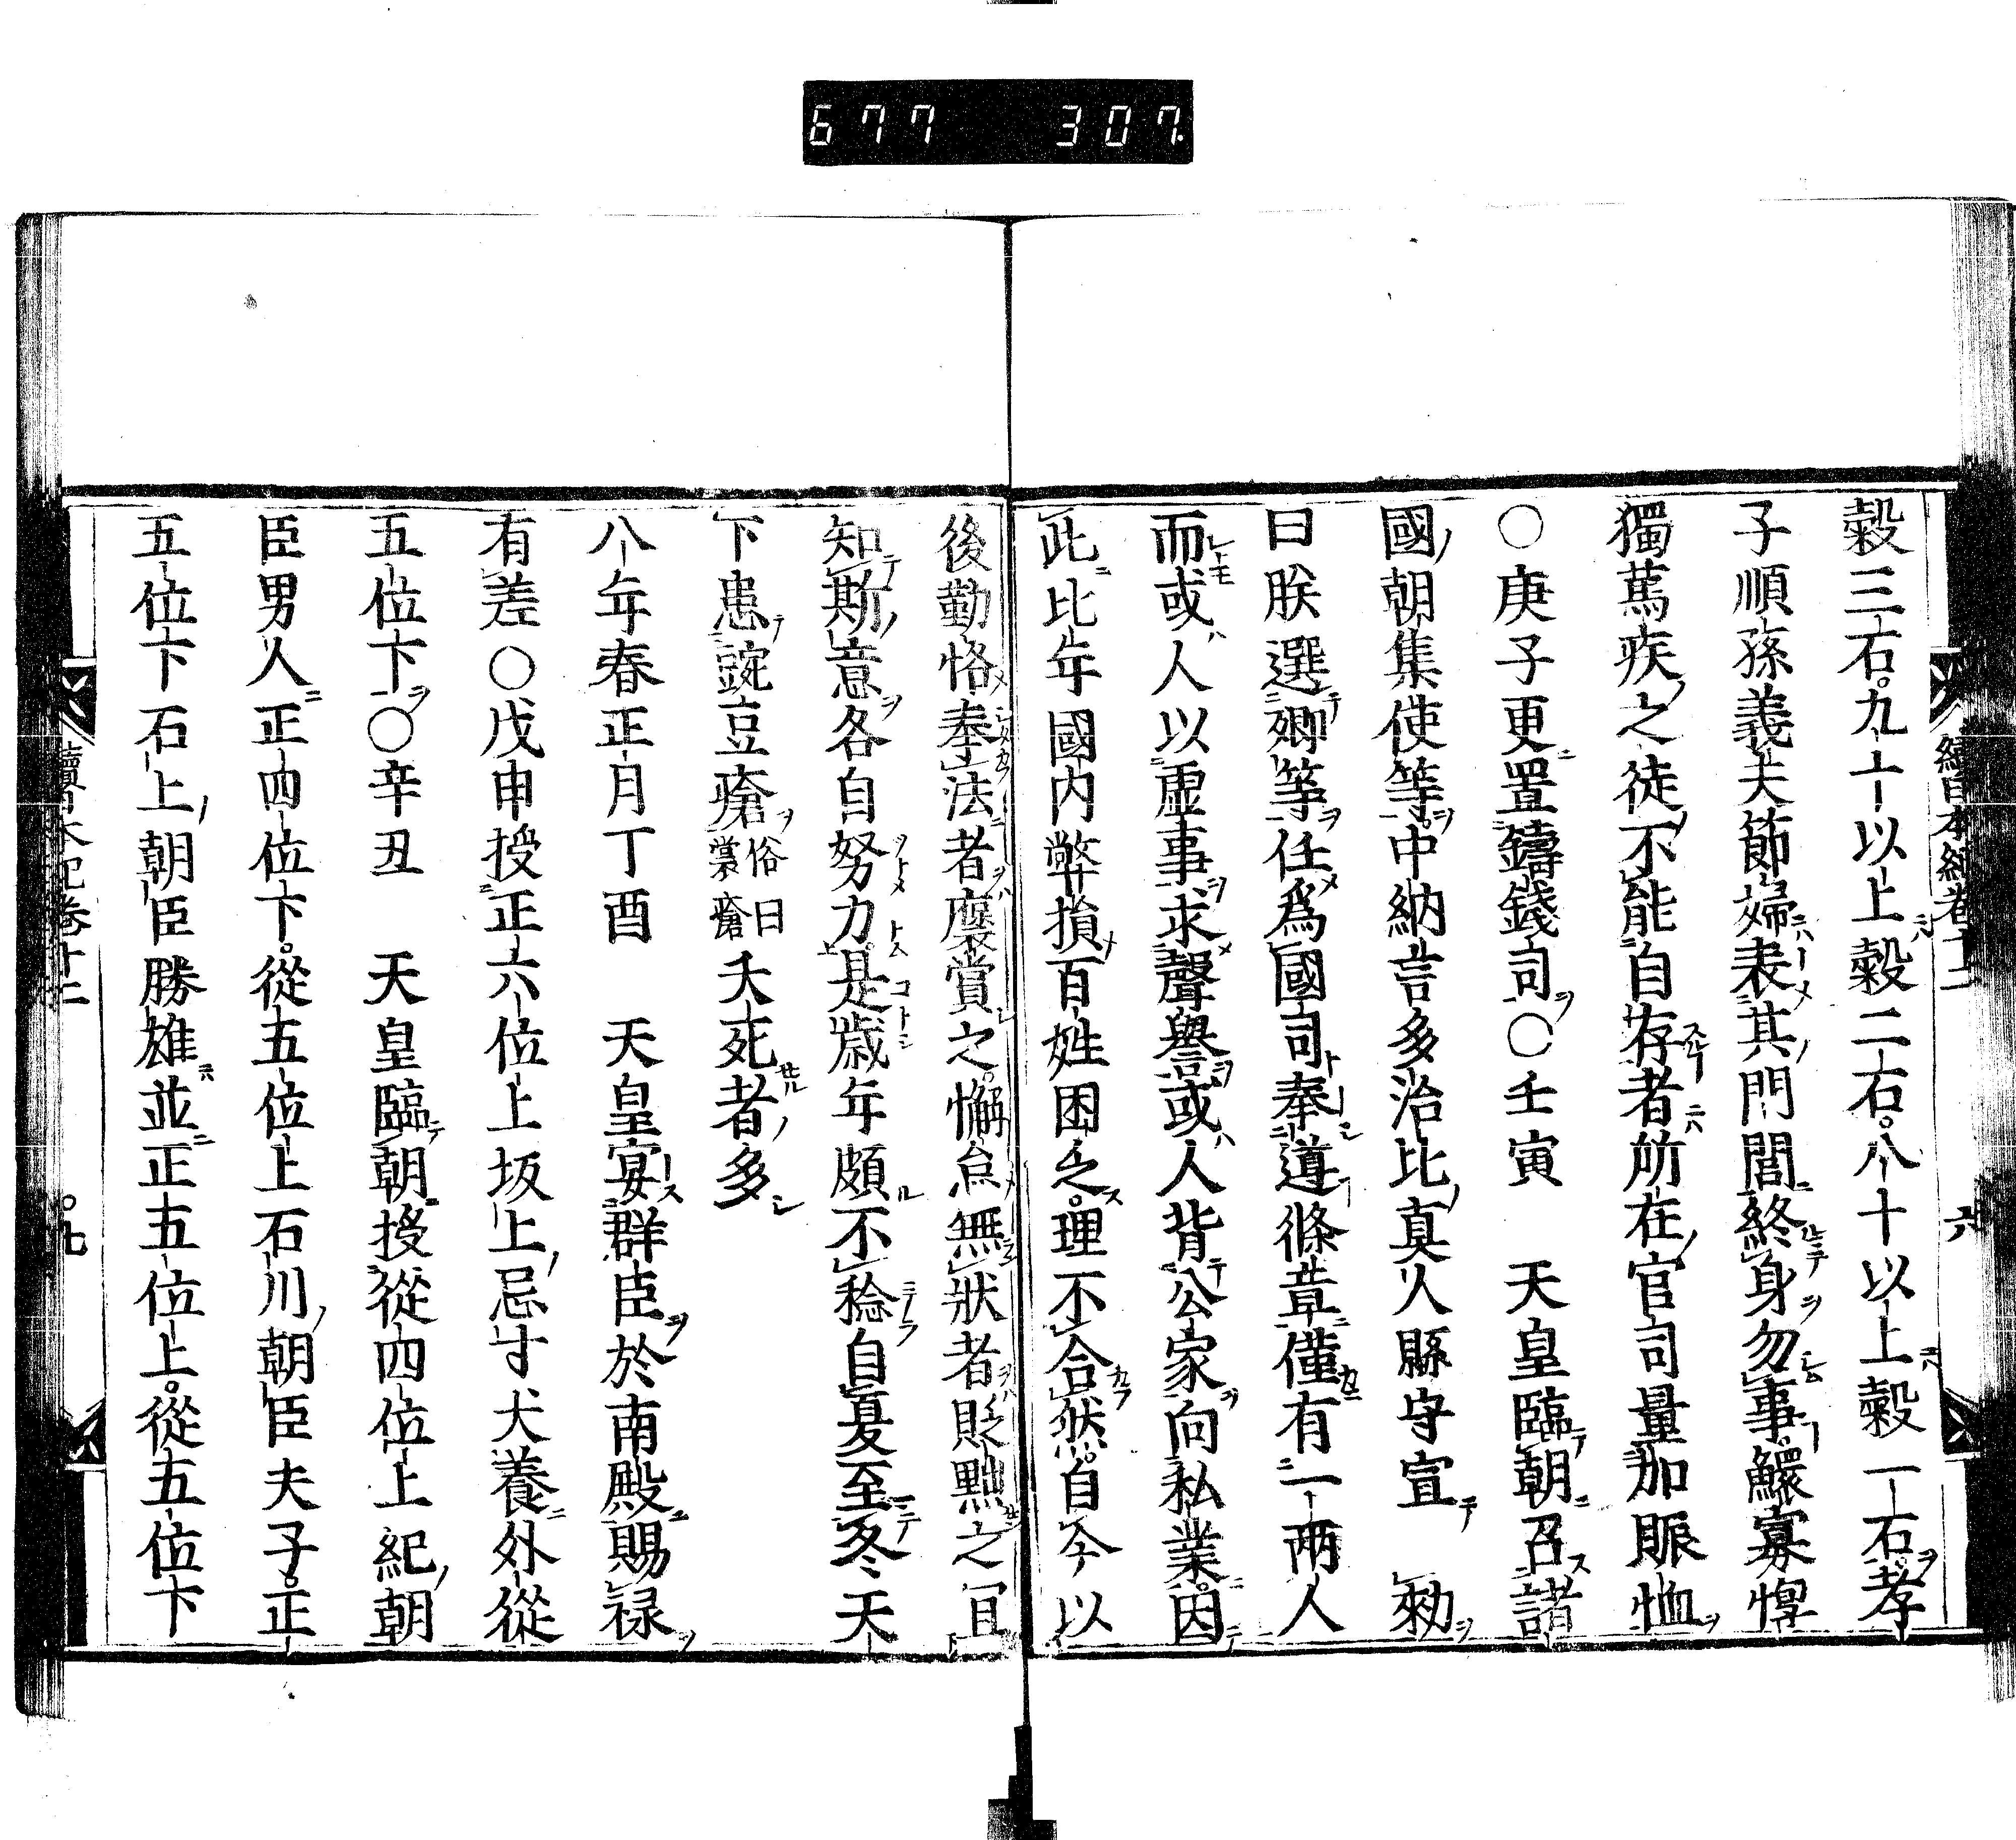 677 307
續日本紀卷十二
六
穀三石。九十以上穀二石。八十以上穀一石。孝
子順孫義夫節婦表其門閭終身勿事鰥寡惸
獨篤疾之徒不能自存者所在官司量加賑恤
〇庚子更置鑄錢司〇壬寅 天皇臨朝召諸
國朝集使等中納言多治比真人縣守宣 勑
曰朕選卿等任爲國司奉遵條章僅有一兩人
而或人以虚事求聲譽或人背公家向私業。因
此比年國内弊損百姓困乏。理不合然。自今以
後勤恪奉法者褒賞之。懈怠無狀者貶黜之宜
知斯意各自努力。是歳年頗不稔自夏至冬天
下患豌豆瘡俗曰裳瘡夭死者多
八年春正月丁酉 天皇宴群臣於南殿賜禄
有差〇戊申授正六位上坂上忌寸犬養外從
五位下〇辛丑 天皇臨朝授從四位上紀朝
臣男人正四位下。從五位上石川朝臣夫子。正
五位下石上朝臣勝雄並正五位上。從五位下
續日本紀卷十二
七